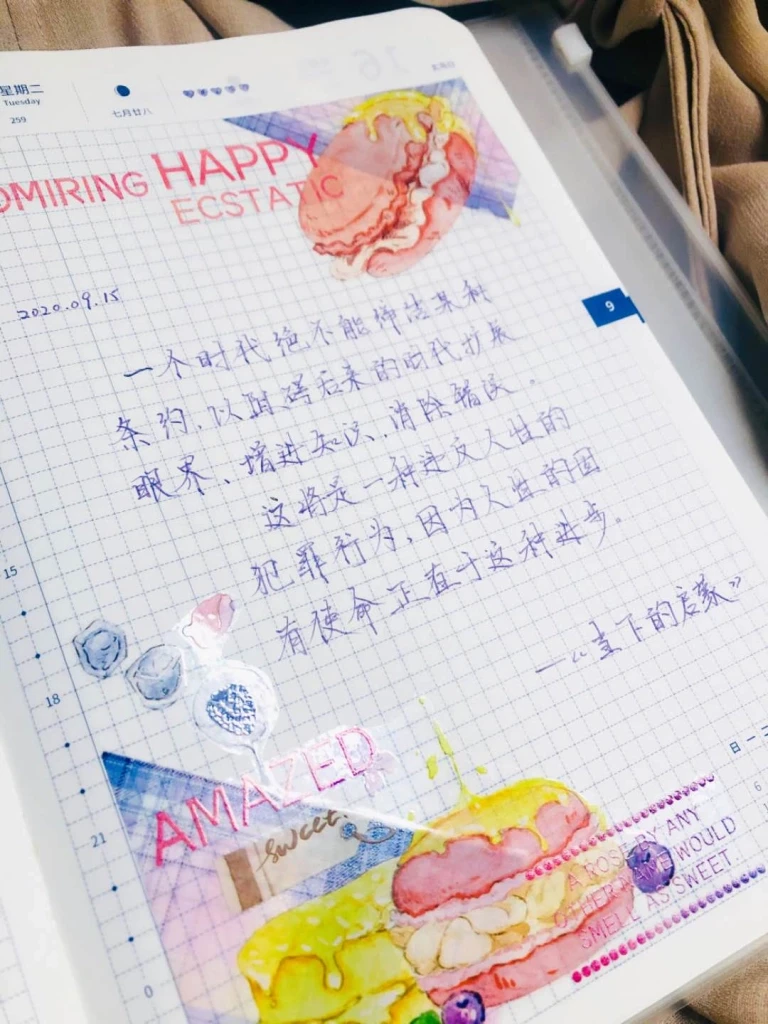 星期二
Tuesday
259
七月廿八
OMIRING HAPPY
ECSTATIC
2020.09.15
9
一个时代绝不能缔结某种
条约,以阻碍后来的时代扩展
眼界、增进知识、消除错误。
这将是一种违反人性的
犯罪行为,因为人性的固
有使命正在于这种进步。
—《当下的启蒙》
15
18
21
0
AMAZED
sweet.
日 一 二
6
A ROSE BY ANY
OTHER NAME WOULD
SMELL AS SWEET